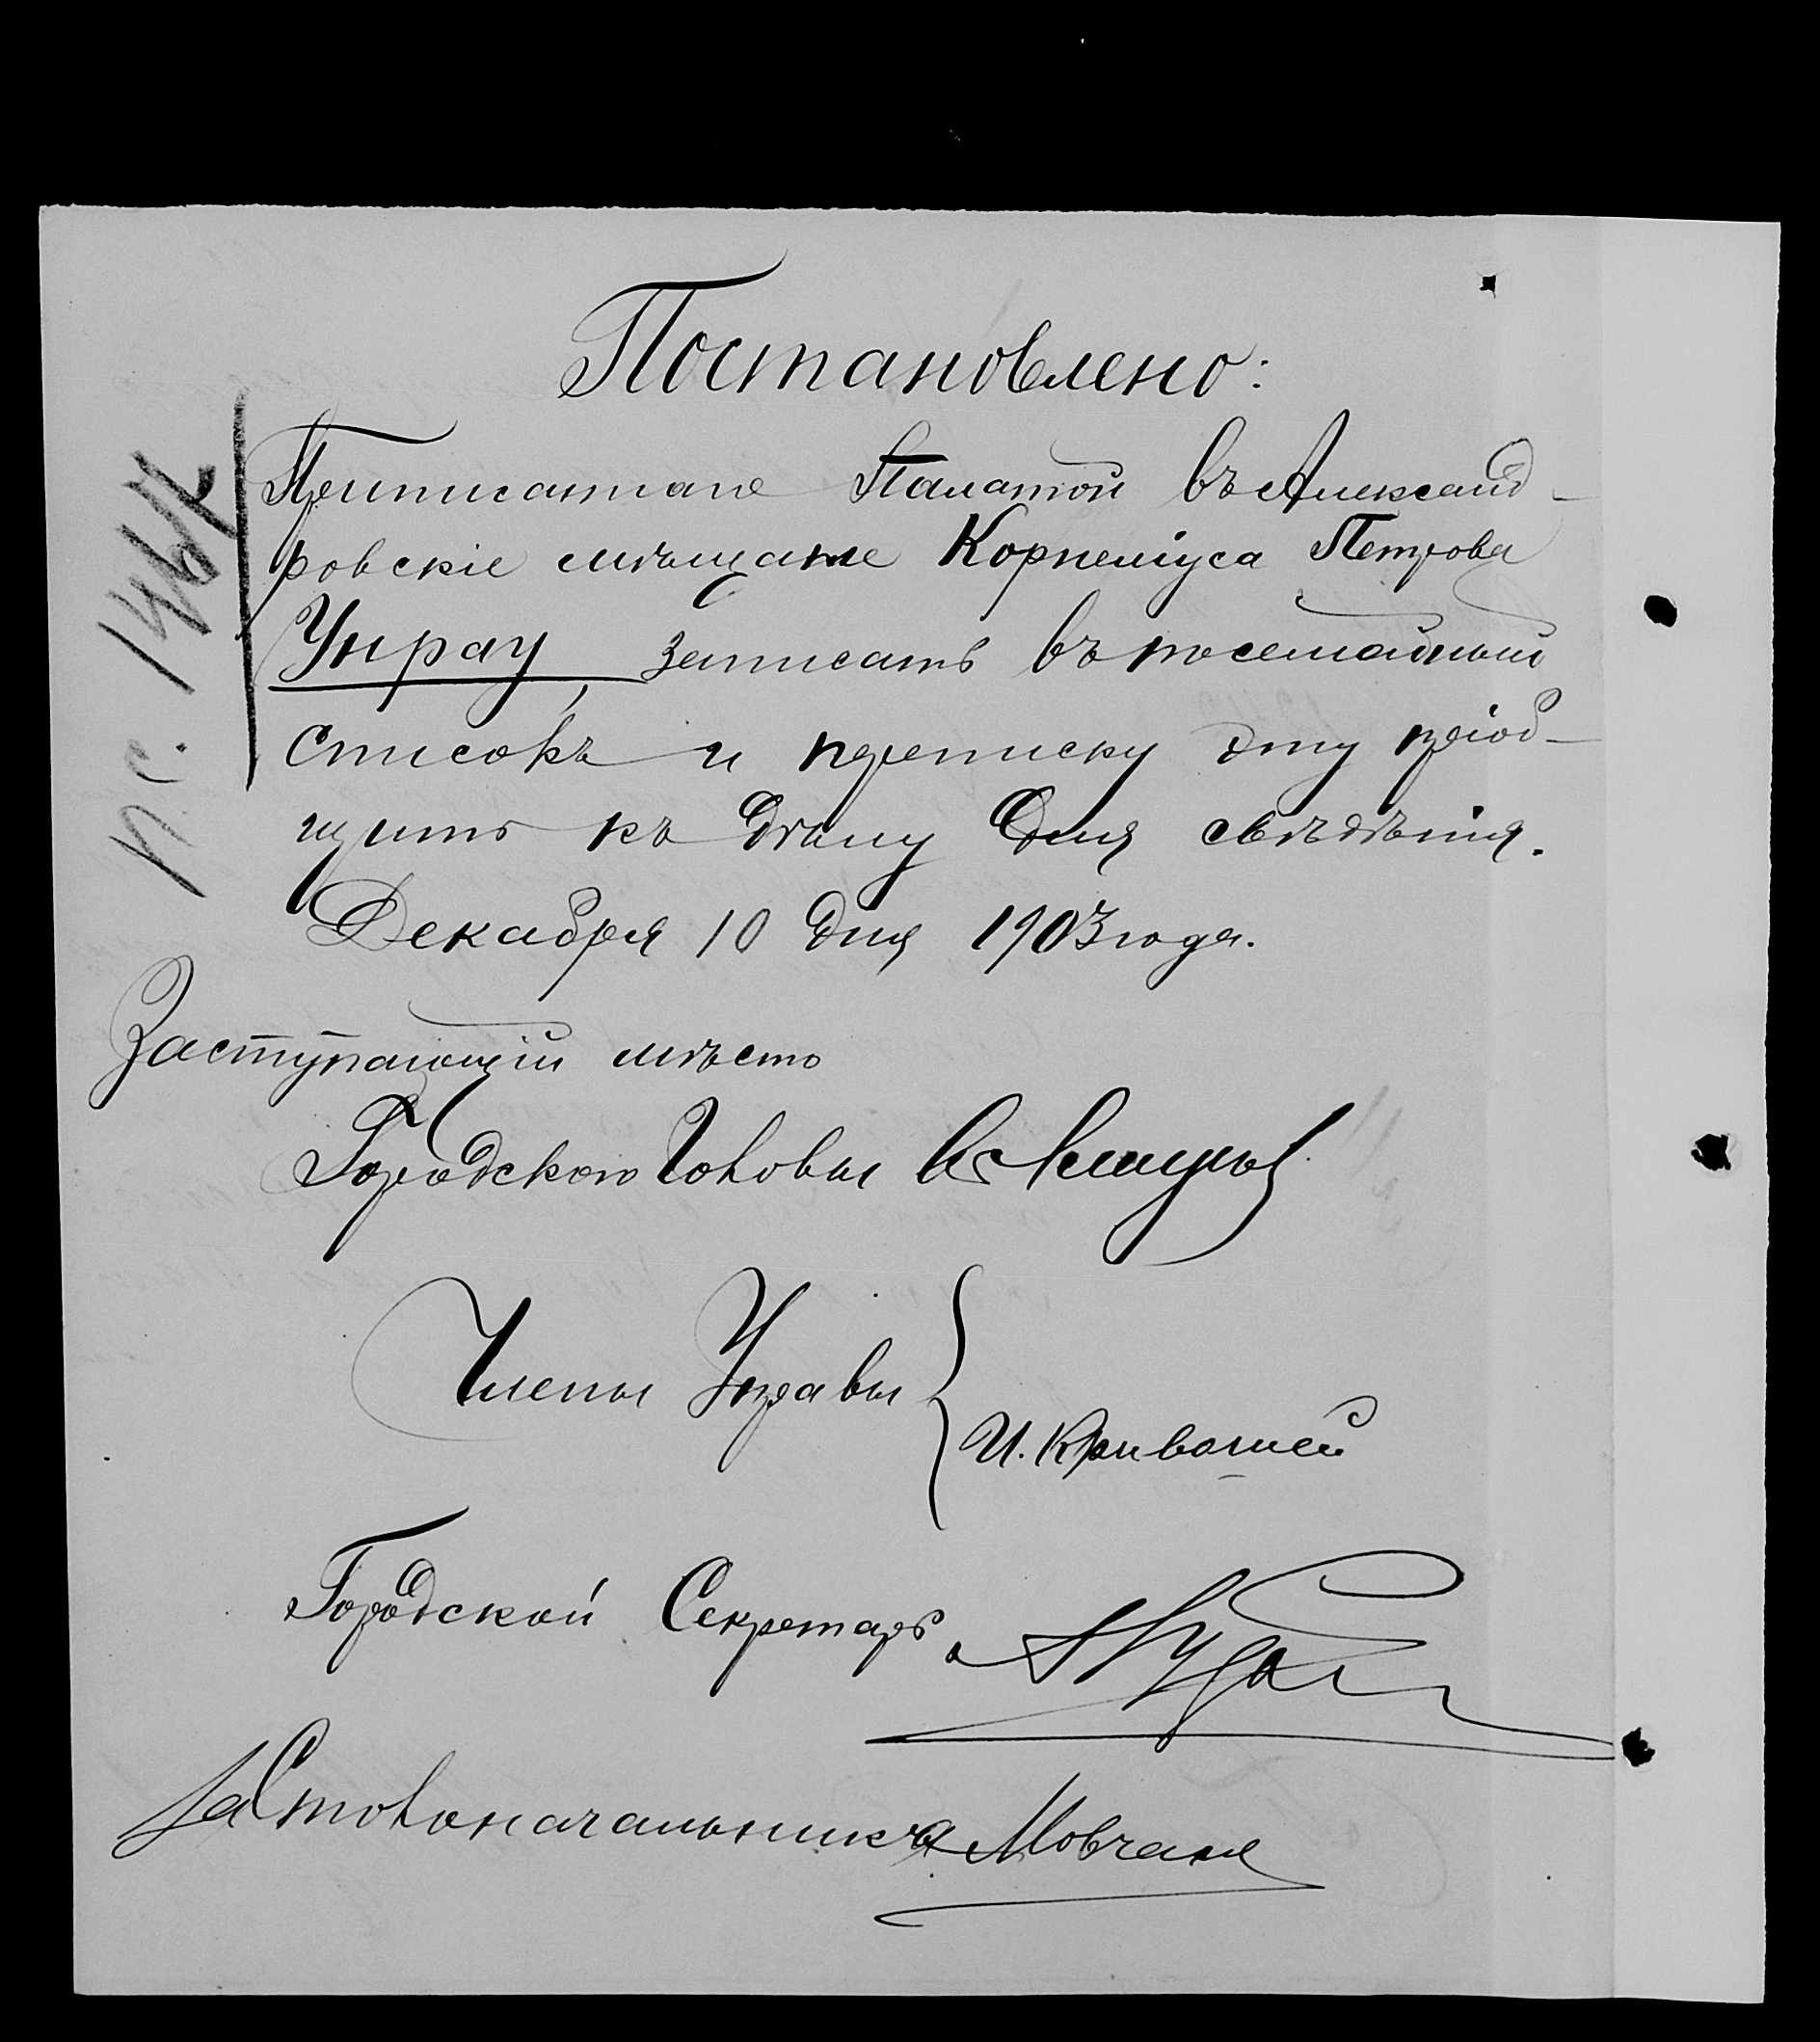 Постановлено:
Приписаннаго Палатой въ Александ-
ровскіе мѣщане Корнеліуса Петрова
Унрау, записать въ посемейный
списокъ и переписку эту пріоб-
щить къ дѣлу для свѣдѣнія.
Декабря 10 дня 1903 года.
Заступающій мѣсто
Городского Головы
Члены Управы
И. Кривошей
Городской Секретарь
За Столоначальника Мовчанъ
п. с.